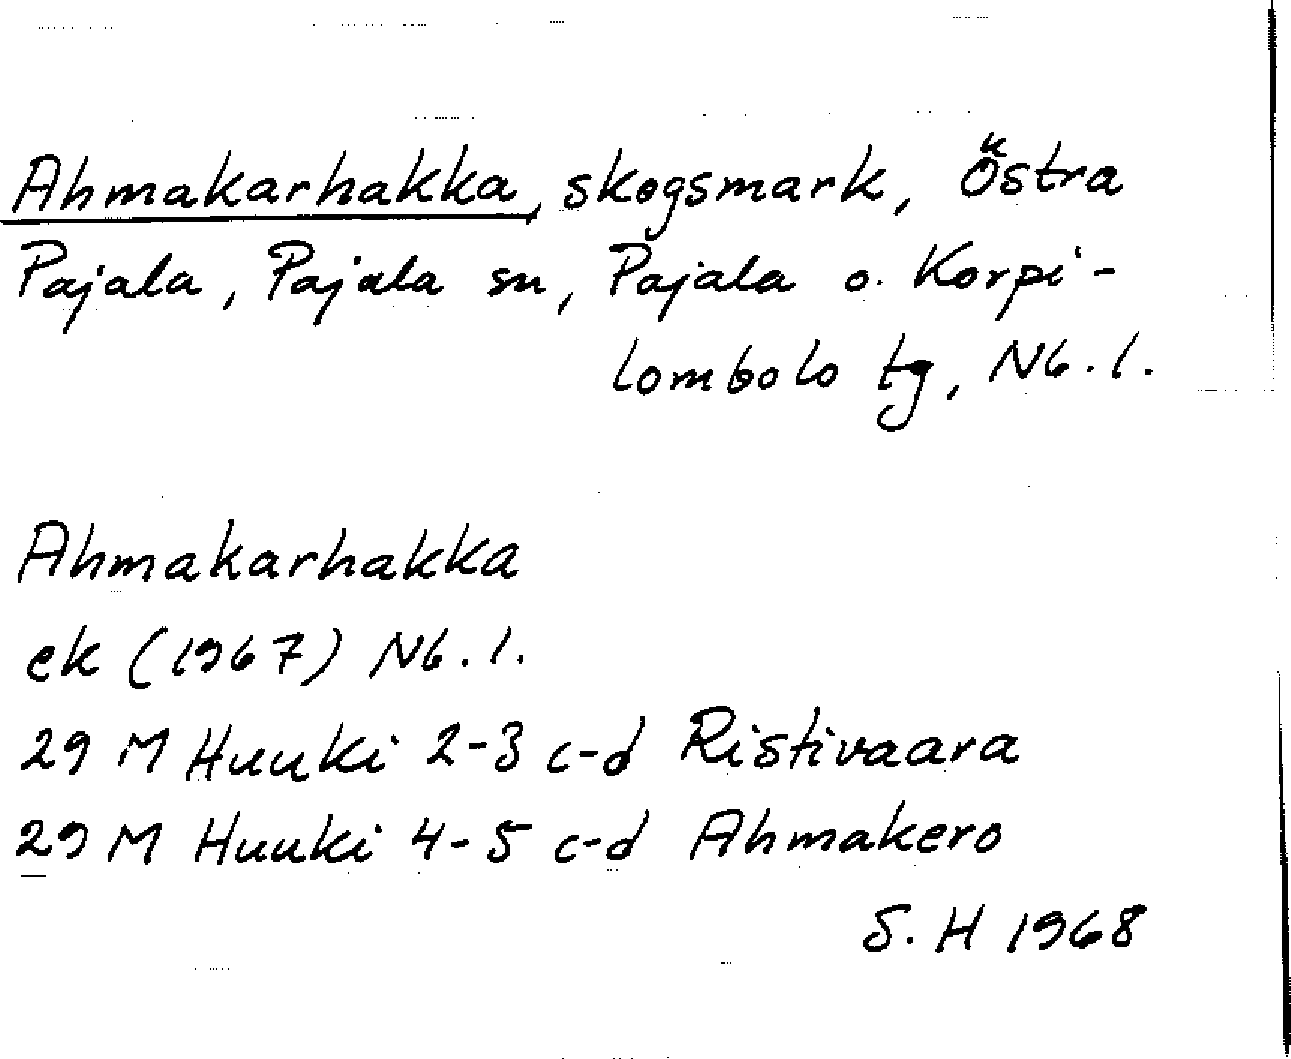 Ahmakarhakka, skogsmark, Östra
Pajala, Pajala sn, Pajala o. Korpi-
lombolo tg, Nb. l.
Ahmakarhakka
ek (1967) Nb. l.
29 M Huuki 2-3 c-d Ristivaara
29 M Huuki 4-5 c-d Ahmakero
S. H 1968